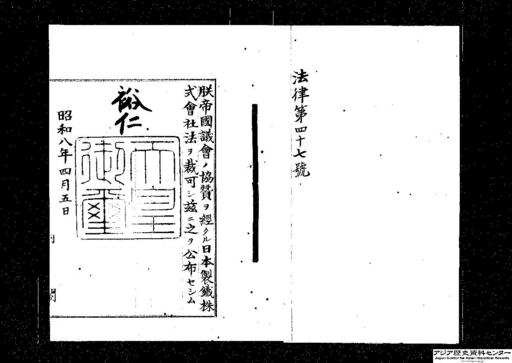 法律第四十七號
朕帝國議會ノ協贊ヲ經タル日本製鐵株
式會社法ヲ裁可シ茲ニ之ヲ公布セシム
裕仁
天皇
御璽
昭和八年四月五日
アジア歴史資料センター
Japan Center for Asian Historical Records